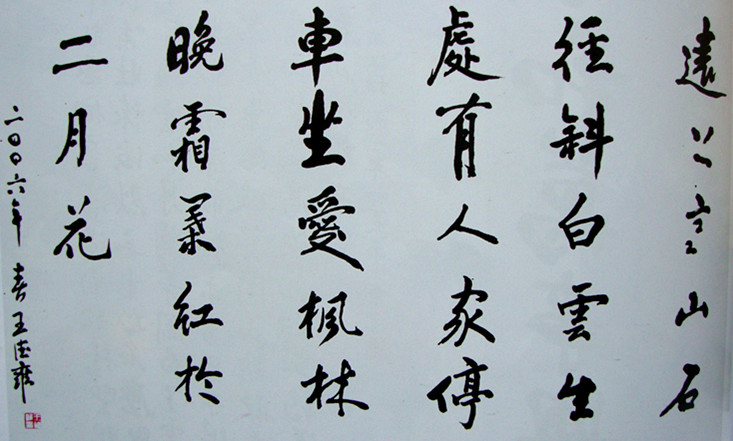 遠上寒山石
徑斜白雲生
處有人家停
車坐愛楓林
晚霜葉紅於
二月花
二〇〇六年春王德雍